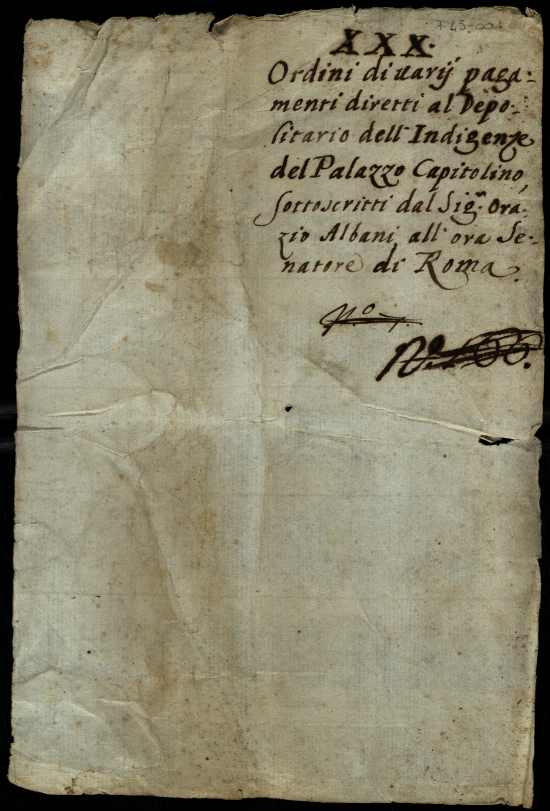 7-45-001
XXX.
Ordini di uarij paga-
menti diretti al Depo-
sitario dell'Indigenze
del Palazzo Capitolino,
sottoscritti dal Sig.r Ora-
zio Albani, all'ora Se-
natore di Roma.
No
No.